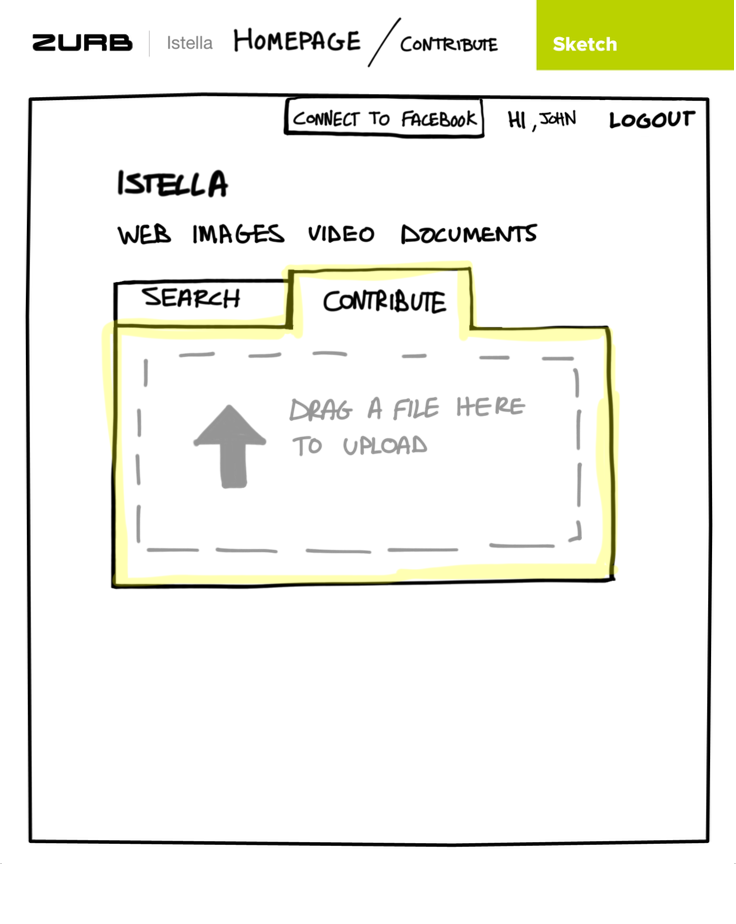 ZURB Istella HOMEPAGE / CONTRIBUTE Sketch
CONNECT TO FACEBOOK HI, JOHN LOGOUT
ISTELLA
WEB IMAGES VIDEO DOCUMENTS
SEARCH CONTRIBUTE
DRAG A FILE HERE
TO UPLOAD